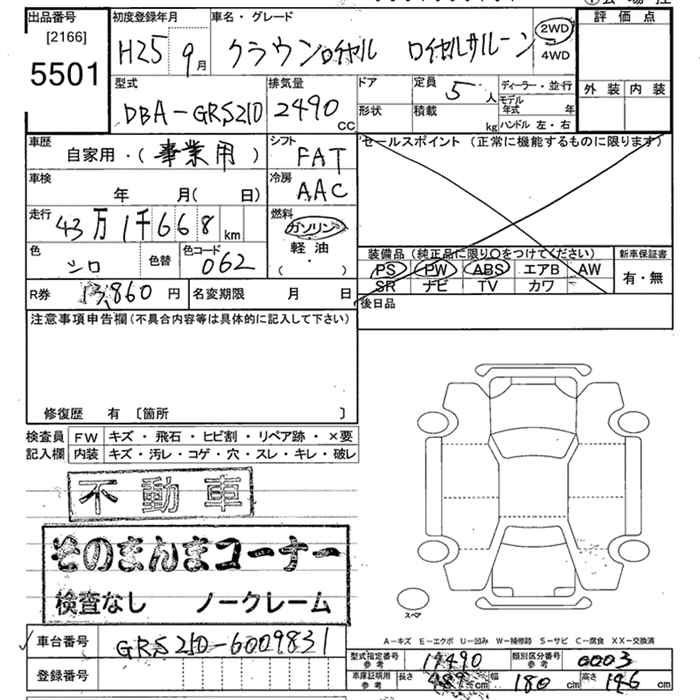 出品番号
[2166]
5501
初度登録年月
H25 9月
車名・グレード
クラウンロイヤル ロイヤルサルーン
2WD
4WD
評価点
外装 内装
型式
DBA-GRS210
排気量
2490 CC
ドア
形状
定員 5 人
積載 kg
ディーラー・並行
モデル年式 年
ハンドル 左・右
車歴
自家用・(事業用)
シフト
FAT
車検
年 月( 日)
冷房
AAC
走行
43万1千668 km
燃料
ガソリン
軽油・
( )
色
シロ
色替
色コード
062
R券 13,860 円
名変期限 月 日
セールスポイント(正常に機能するものに限ります)
装備品(純正品に限り○をつけてください)
PS PW ABS エアB AW
SR ナビ TV カワ
新車保証書
有・無
後日品
注意事項申告欄(不具合内容等は具体的に記入して下さい)
修復歴 有 〔箇所 〕
検査員記入欄
FW キズ・飛石・ヒビ割・リペア跡・×要
内装 キズ・汚レ・コゲ・穴・スレ・キレ・破レ
不動車
そのまんまコーナー
検査なし ノークレーム
スペア
A-キズ E-エクボ U-凹み W-補修跡 S-サビ C-腐食 XX-交換済
車台番号 GRS210-6009831
登録番号
型式指定番号 参考 17490
類別区分番号 参考 0003
車庫証明用 参考 長さ 489 cm 幅 180 cm 高さ 146 cm